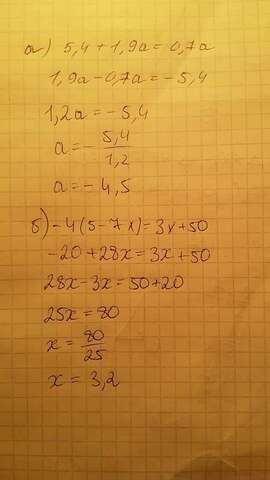 а) 5,4 + 1,9а = 0,7а
1,9а - 0,7а = - 5,4
1,2а = - 5,4
а = - 5,4/1,2
а = - 4,5
б) - 4(5 - 7x) = 3x + 50
- 20 + 28x = 3x + 50
28x - 3x = 50 + 20
25x = 80
x = 80/25
x = 3,2